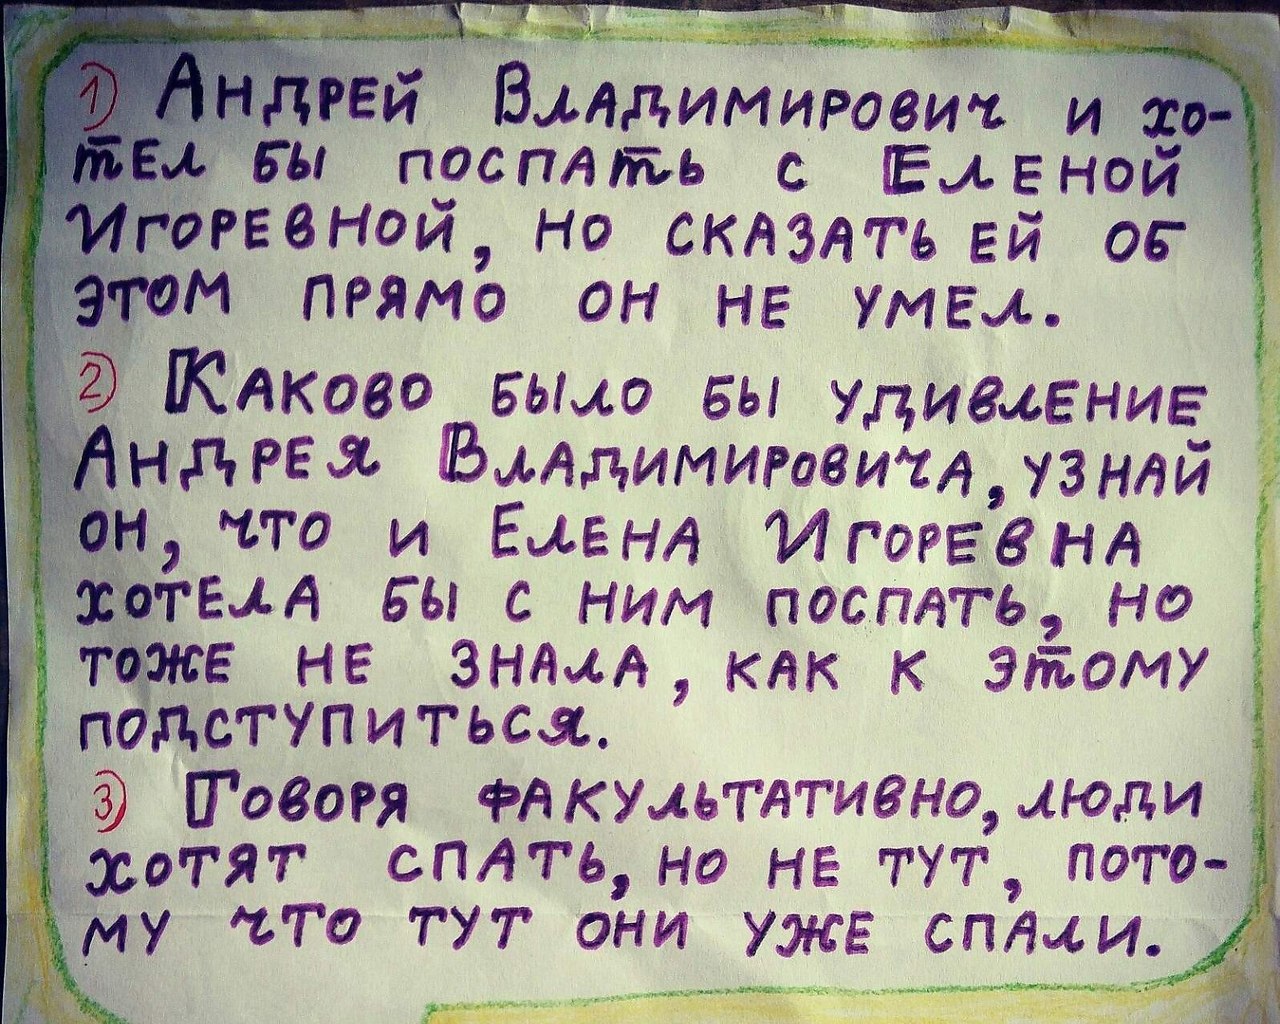 1) Андрей Владимирович и хо-
тел бы поспать с Еленой
Игоревной, но сказать ей об
этом прямо он не умел.
2) Каково было бы удивление
Андрея Владимировича, узнай
он, что и Елена Игоревна
хотела бы с ним поспать, но
тоже не знала, как к этому
подступиться.
3) Говоря факультативно, люди
хотят спать, но не тут, пото-
му что тут они уже спали.